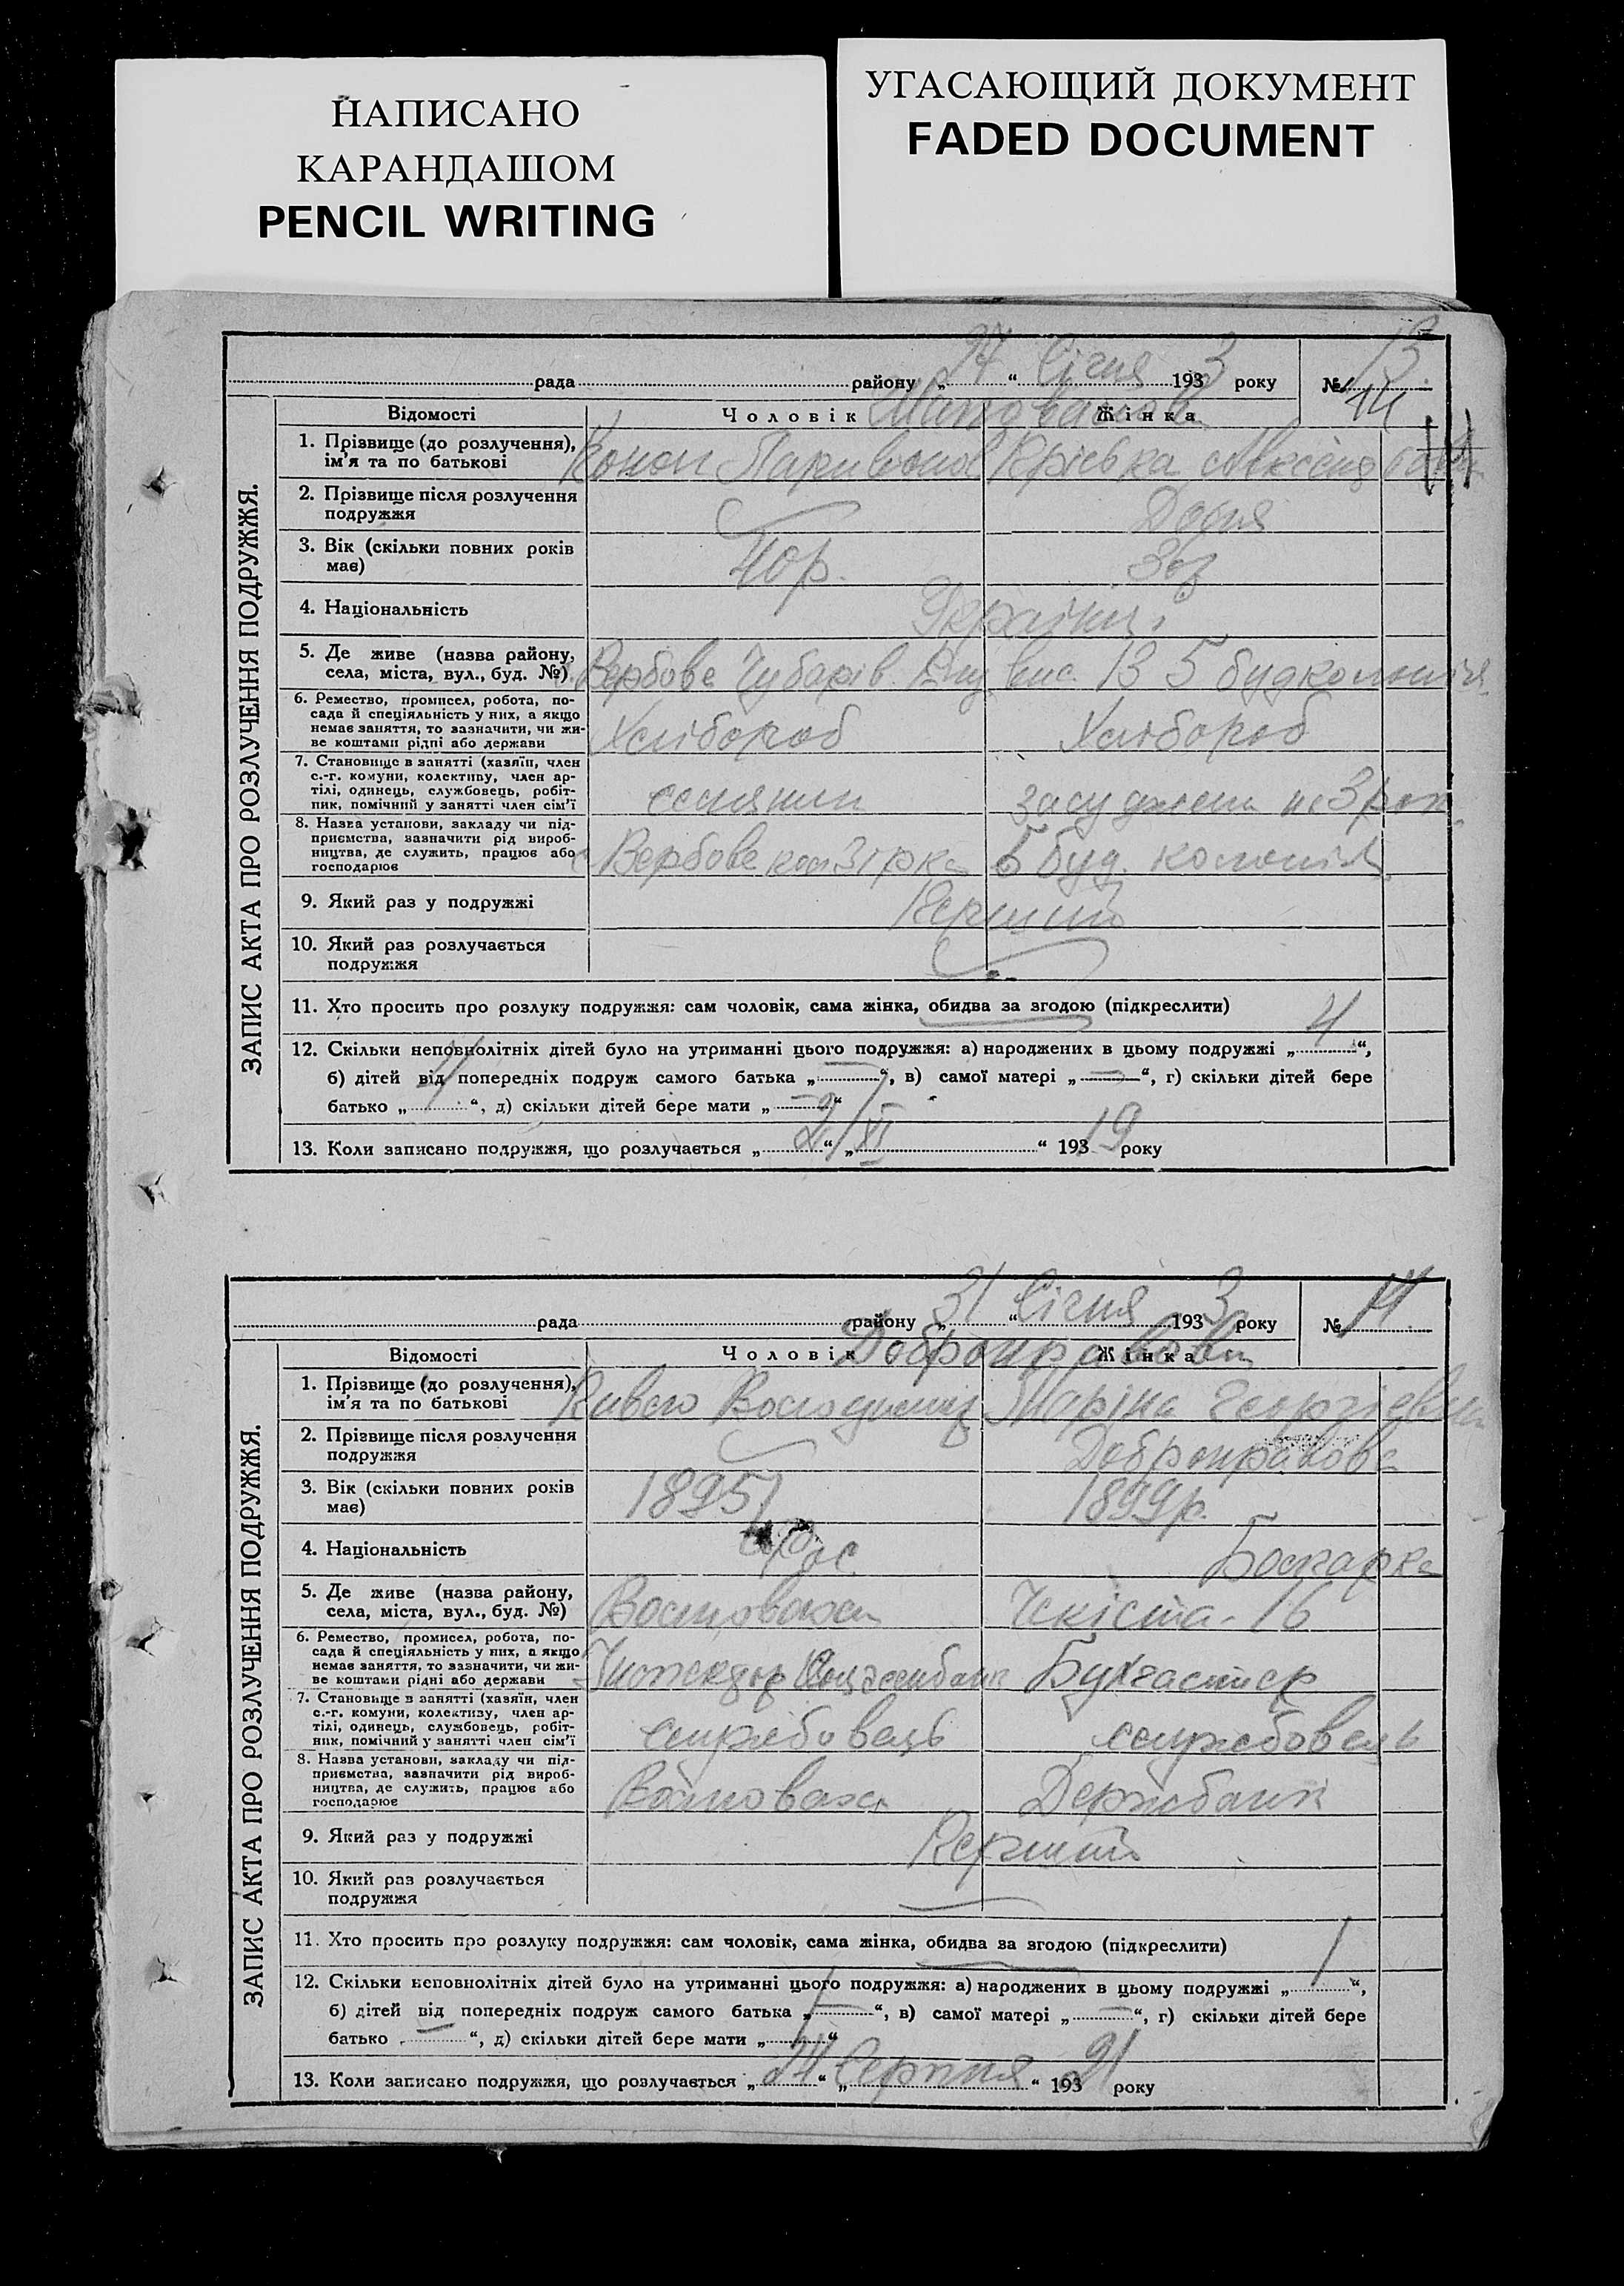 НАПИСАНО
КАРАНДАШОМ
PENCIL WRITING
УГАСАЮЩИЙ ДОКУМЕНТ
FADED DOCUMENT
ЗАПИС АКТА ПРО РОЗЛУЧЕННЯ ПОДРУЖЖЯ.
рада района „27“ Січня 1933 року № 13
14
Відомості Чоловік Жінка
1. Прізвище (до розлучення), ім'я та по батькові
2. Прізвище після розлучення подружжя
3. Вік (скільки повних років має) 40 р.
4. Національність Українці
5. Де живе (назва району, села, міста, вул., буд. №) Вербове Чубарів 5 будколонія
6. Ремество, промисел, робота, посада й спеціяльність у них, а якщо немає заняття, то зазначити, чи живе коштами рідні або держави Хлібороб Хлібороб
7. Становище в занятті (хазяїн, член с.-г. комуни, колективу, член артілі, одинець, службовець, робітник, помічний у занятті член сім'ї селянин засуджена на 3 рок
8. Назва установи, закладу чи підприємства, зазначити рід виробництва, де служить, працює або господарює Вербове Зірка 5 буд. колонія
9. Який раз у подружжі Перший
10. Який раз розлучається подружжя
11. Хто просить про розлуку подружжя: сам чоловік, сама жінка, обидва за згодою (підкреслити)
12. Скільки неповнолітніх дітей було на утриманні цього подружжя: а) народжених в цьому подружжі „4“,
б) дітей від попередніх подруж самого батька „—“, в) самої матері „—“, г) скільки дітей бере
батько „4“, д) скільки дітей бере мати „—“
13. Коли записано подружжя, що розлучається „2“ „XI“ 19319 року
ЗАПИС АКТА ПРО РОЗЛУЧЕННЯ ПОДРУЖЖЯ.
рада району „31“ Січня 1933 року № 14
Відомості Чоловік Жінка
Доброправови
1. Прізвище (до розлучення), ім'я та по батькові Маріна Георгіевна
2. Прізвище після розлучення подружжя Доброправова
3. Вік (скільки повних років має) 1895 1899 р.
4. Національність Рос Болгарка
5. Де живе (назва району, села, міста, вул., буд. №) Волноваха Чекіста 16
6. Ремество, промисел, робота, посада й спеціяльність у них, а якщо немає заняття, то зазначити, чи живе коштами рідні або держави Бухгалтер
7. Становище в занятті (хазяїн, член с.-г. комуни, колективу, член артілі, одинець, службовець, робітник, помічний у занятті член сім'ї службовець службовець
8. Назва установи, закладу чи підприємства, зазначити рід виробництва, де служить, працює або господарює Волноваха Держбанк
9. Який раз у подружжі Перший
10. Який раз розлучається подружжя
11. Хто просить про розлуку подружжя: сам чоловік, сама жінка, обидва за згодою (підкреслити)
12. Скільки неповнолітніх дітей було на утриманні цього подружжя: а) народжених в цьому подружжі „1“,
б) дітей від попередніх подруж самого батька „—“, в) самої матері „—“, г) скільки дітей бере
батько „—“, д) скільки дітей бере мати „1“
13. Коли записано подружжя, що розлучається „24“ „Серпня“ 19321 року